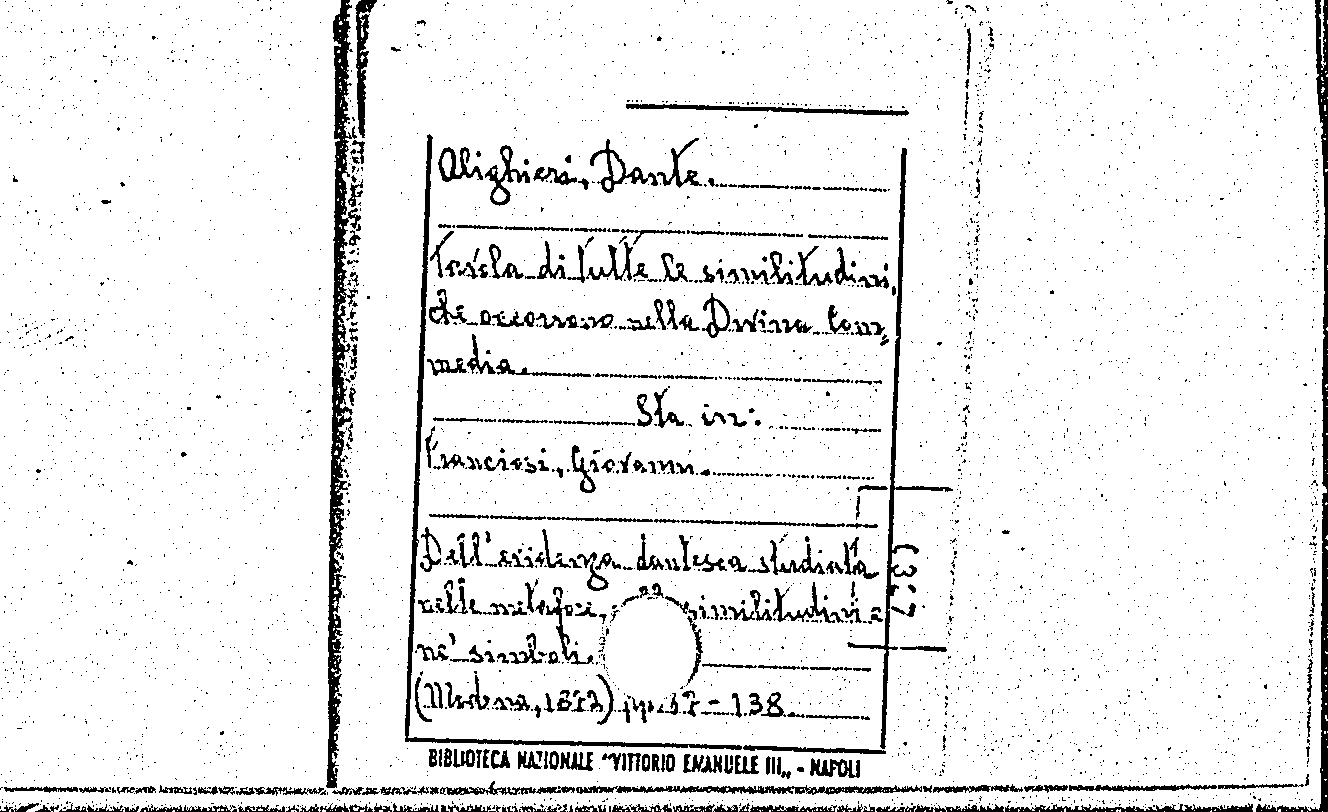 Alighieri, Dante.
Tavola di tutte le similitudini,
che occorrono nella Divina Com=
media.
Sta in:
Franciosi, Giovanni.
Dell'evidenza dantesca studiata
nelle metafore, similitudini e
ne' simboli.
(Modena, 1872) pp. 37-138.
BIBLIOTECA NAZIONALE "VITTORIO EMANUELE III„ - NAPOLI